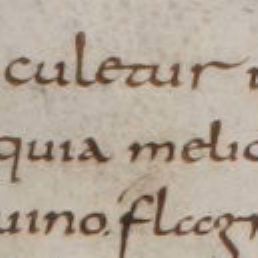 culetur
quia melio
uino. flagr